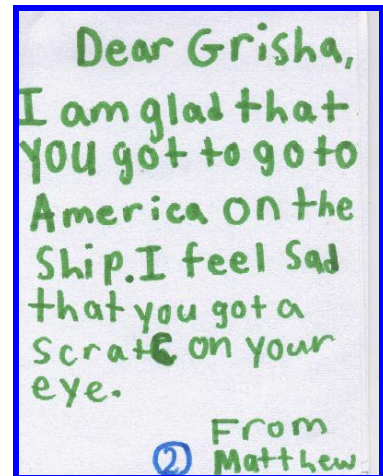 Dear Grisha,
I am glad that
you got to go to
America on the
Ship. I feel Sad
that you got a
scratc on your
eye.
From
② Matthew